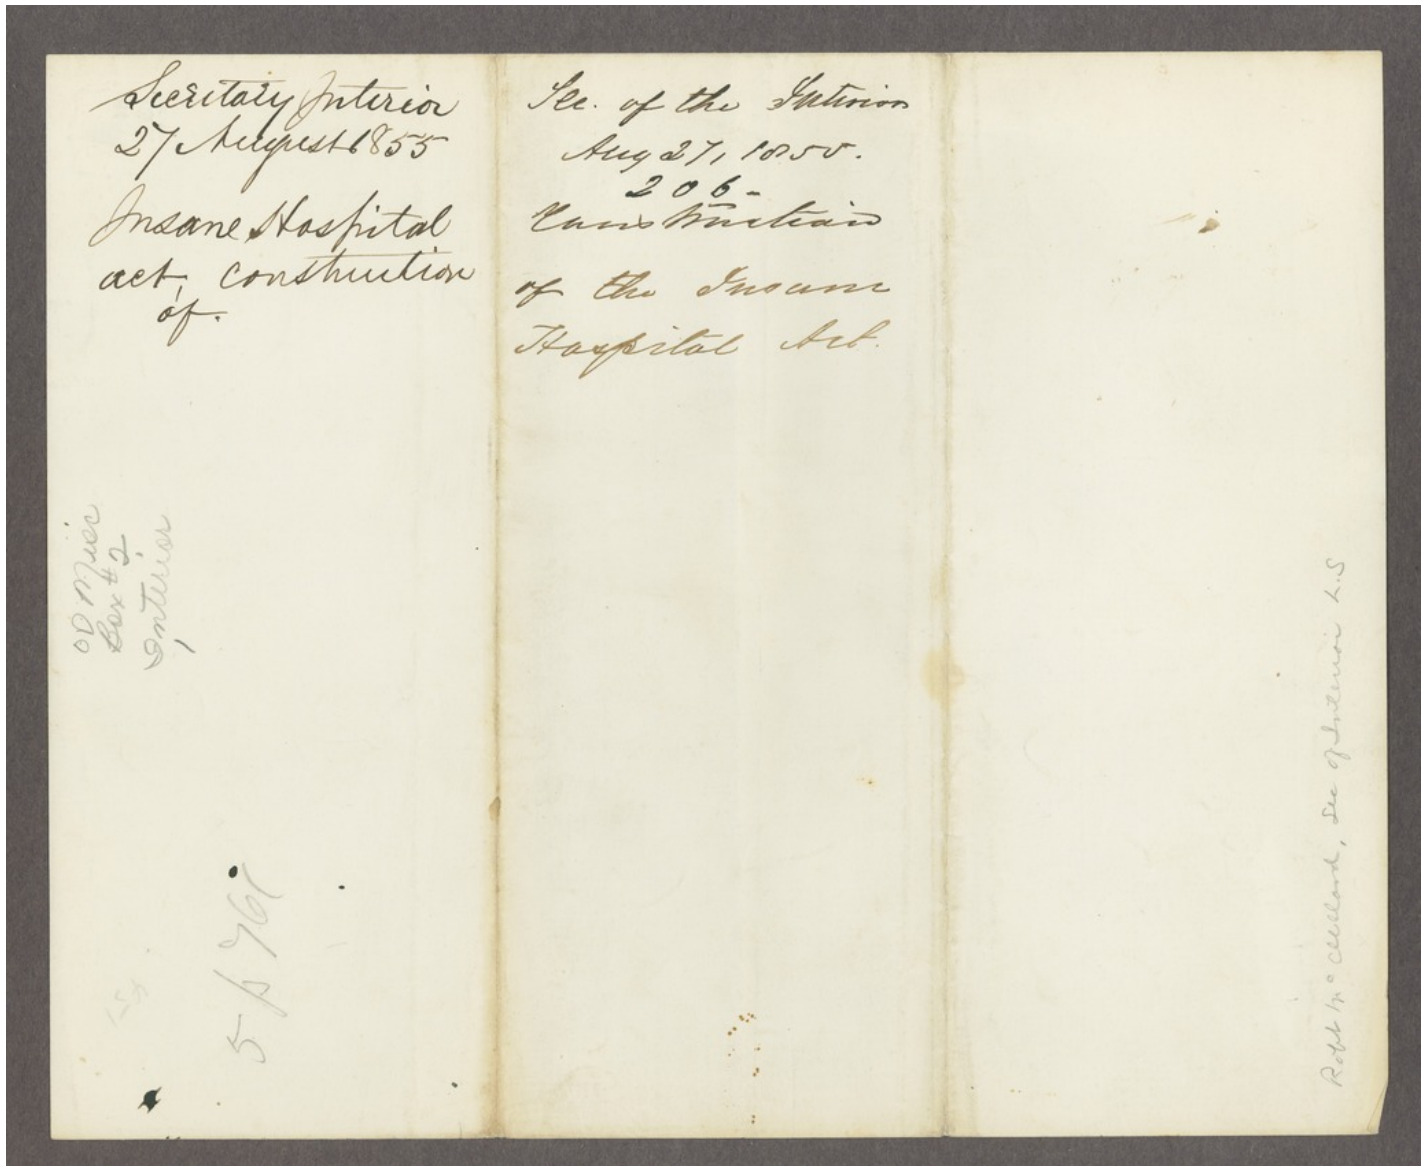 Secretary Interior
27 August 1855
Insane Hospital
act, construction
of.
OD Misc
Box #2
Interior
5 p 761
Sec. of the Interior
Aug 27, 1855.
206-
Construction
of the Insane
Hospital Act.
Robt Mc Clelland, Sec of Interior L.S